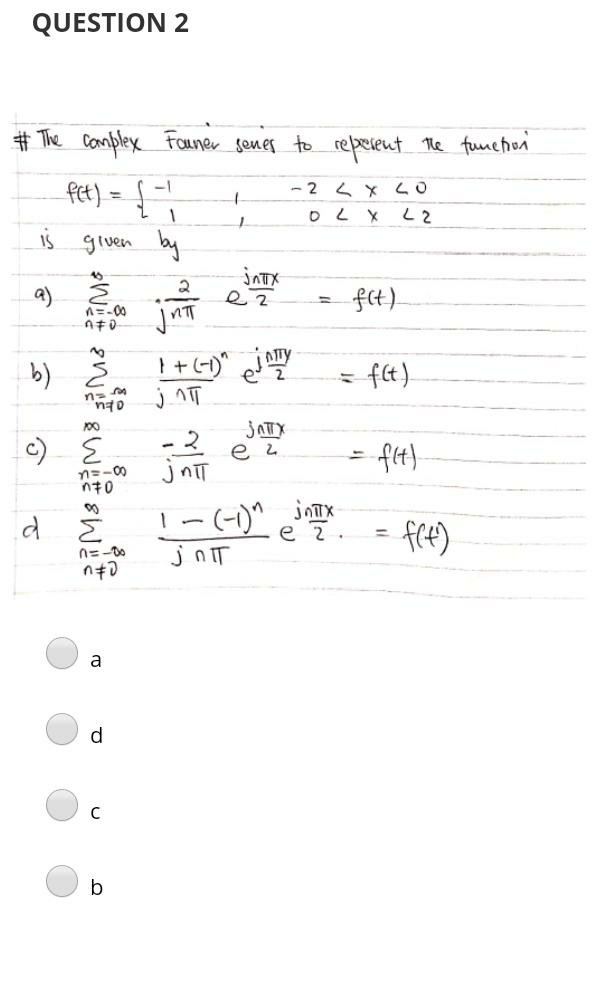 QUESTION 2
# The complex Fourier series to represent the function
f(t) = { -1 , -2 < x < 0
1 , 0 < x < 2
is given by
a) ∞ Σ n=-∞ n≠0 2/jnπ e^(jnπx/2) = f(t)
b) ∞ Σ n=-∞ n≠0 1+(-1)^n/j nπ e^(jnπy/2) = f(t)
c) ∞ Σ n=-∞ n≠0 -2/jnπ e^(jnπx/2) = f(t)
d ∞ Σ n=-∞ n≠0 1-(-1)^n/j nπ e^(jnπx/2) . = f(t)
a
d
c
b